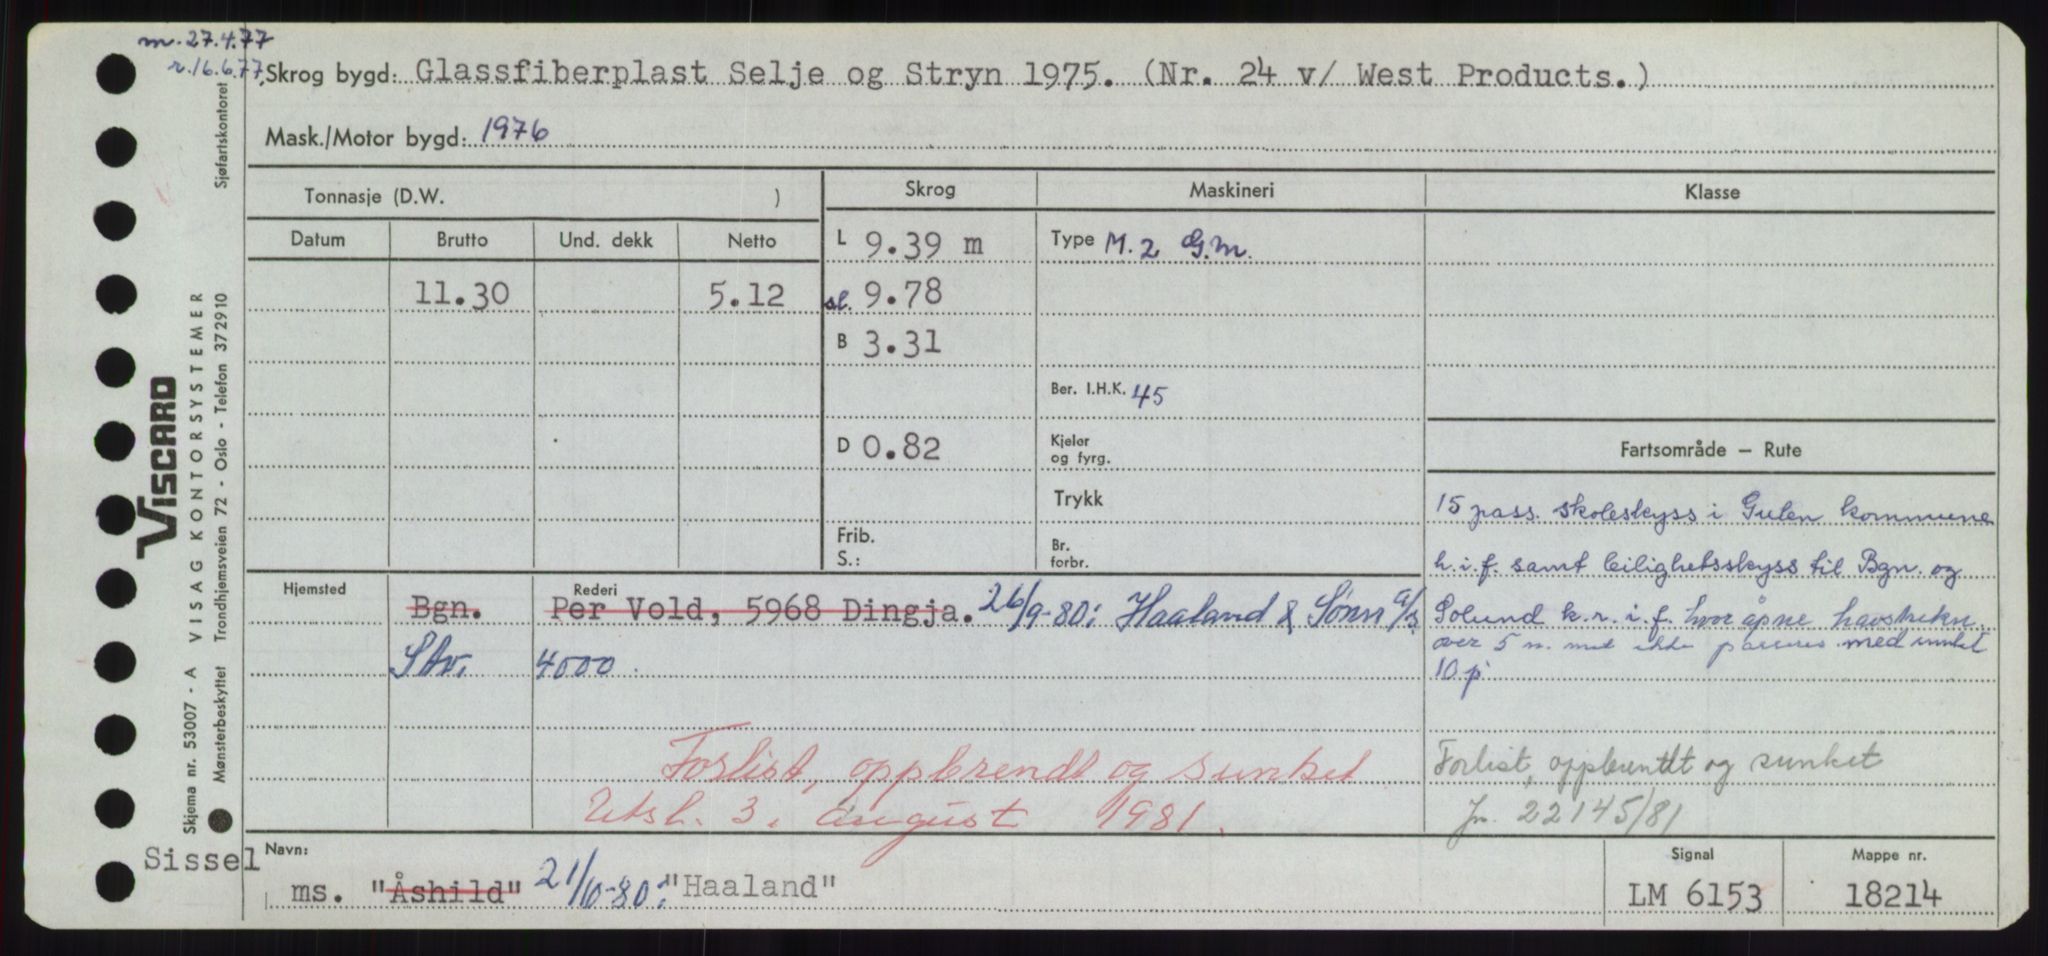 m. 27.4.77
r. 16.6.77,
Skrog bygd: Glassfiberplast Selje og Stryn 1975. (Nr. 24 v/ West Products.)
Mask./Motor bygd: 1976
Tonnasje (D.W. )
Skrog
Maskineri
Klasse
Datum Brutto Und. dekk Netto
11.30 5.12
L 9.39 m
sl. 9.78
B 3.31
D 0.82
Frib.
S.:
Type M. 2 G.m.
Ber. I.H.K. 45
Kjeler
og fyrg.
Trykk
Br.
forbr.
Fartsområde – Rute
15 pass. skoleskyss i Gulen kommune
h.i.f. samt leilighetsskyss til Bgn. og
Solund k.r.i.f. hvor åpne havstrekn.
over 5 n. m ikke passeres med
10 p
Forlist, oppbrendt og sunket
Jn. 22145/81
Hjemsted
Rederi
Bgn. Per Vold, 5968 Dingja. 26/9-80: Haaland & Sønn a/s
Stv. 4000.
Forlist, oppbrendt og sunket
Utsl. 3. august 1981.
Sissel
Navn:
ms. "Åshild" 21/10-80: "Haaland"
Signal
LM 6153
Mappe nr.
18214
Sjøfartskontoret
VISCARD
VISAG KONTORSYSTEMER
Trondhjemsveien 72 - Oslo - Telefon 372910
Skjema nr. 53007 - A
Mønsterbeskyttet